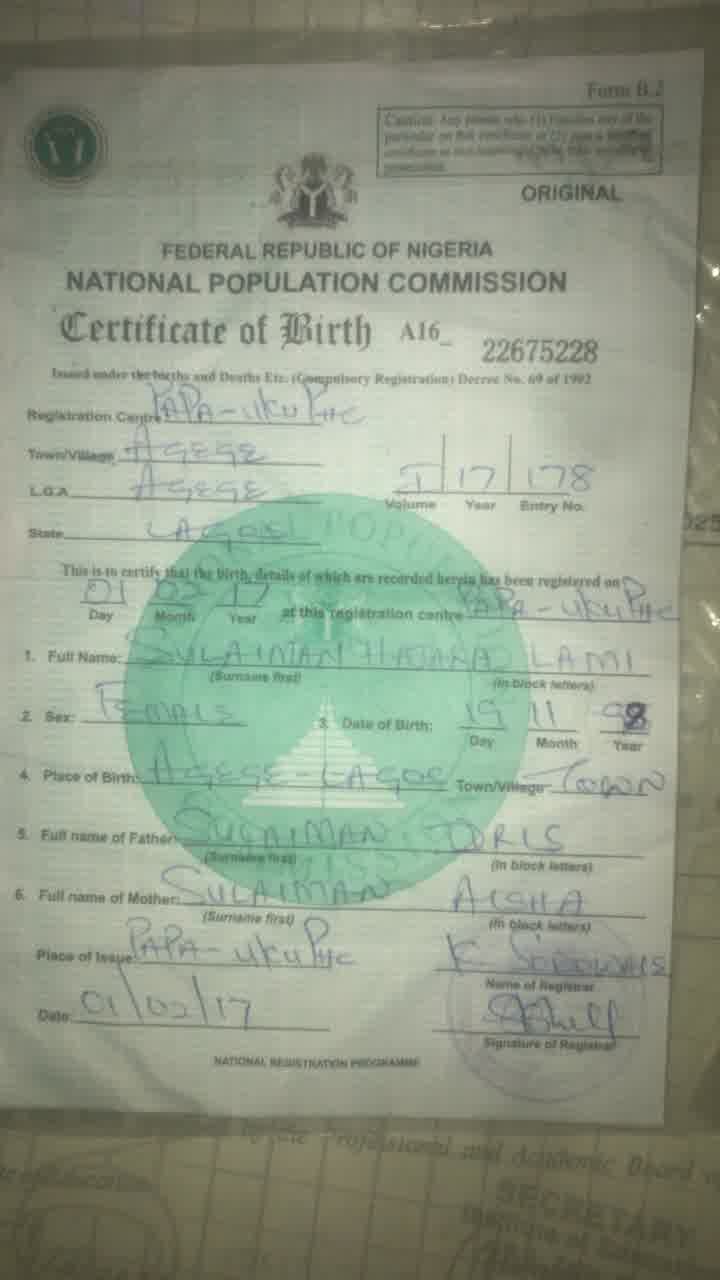 Form B.2
Caution: Any person who (1) falsifies any of the
particular on this certificate or (2) uses a
ORIGINAL
FEDERAL REPUBLIC OF NIGERIA
NATIONAL POPULATION COMMISSION
Certificate of Birth A16_ 22675228
Issued under the births and Deaths Etc. (Compulsory Registration) Decree No. 69 of 1992
Registration Centre PAPA-UKU PHC
Town/Village AGEGE
L.G.A. AGEGE
I 17 178
Volume Year Entry No.
State LAGOS
This is to certify that the birth, details of which are recorded herein has been registered on
01 02 17 at this registration centre PAPA-UKU PHC
Day Month Year
1. Full Name: SULAIMAN LAMI
(Surname first) (In block letters)
2. Sex: FEMALE 3. Date of Birth: 19 11 98
Day Month Year
4. Place of Birth: AGEGE-LAGOS Town/Village TOWN
5. Full name of Father: SULAIMAN IDRIS
(Surname first) (In block letters)
6. Full name of Mother: SULAIMAN AISHA
(Surname first) (In block letters)
Place of Issue: PAPA-UKU PHC K
Name of Registrar
Date: 01/02/17
Signature of Registrar
NATIONAL REGISTRATION PROGRAMME
Professional and Academic Board
SECRETARY
Institute of